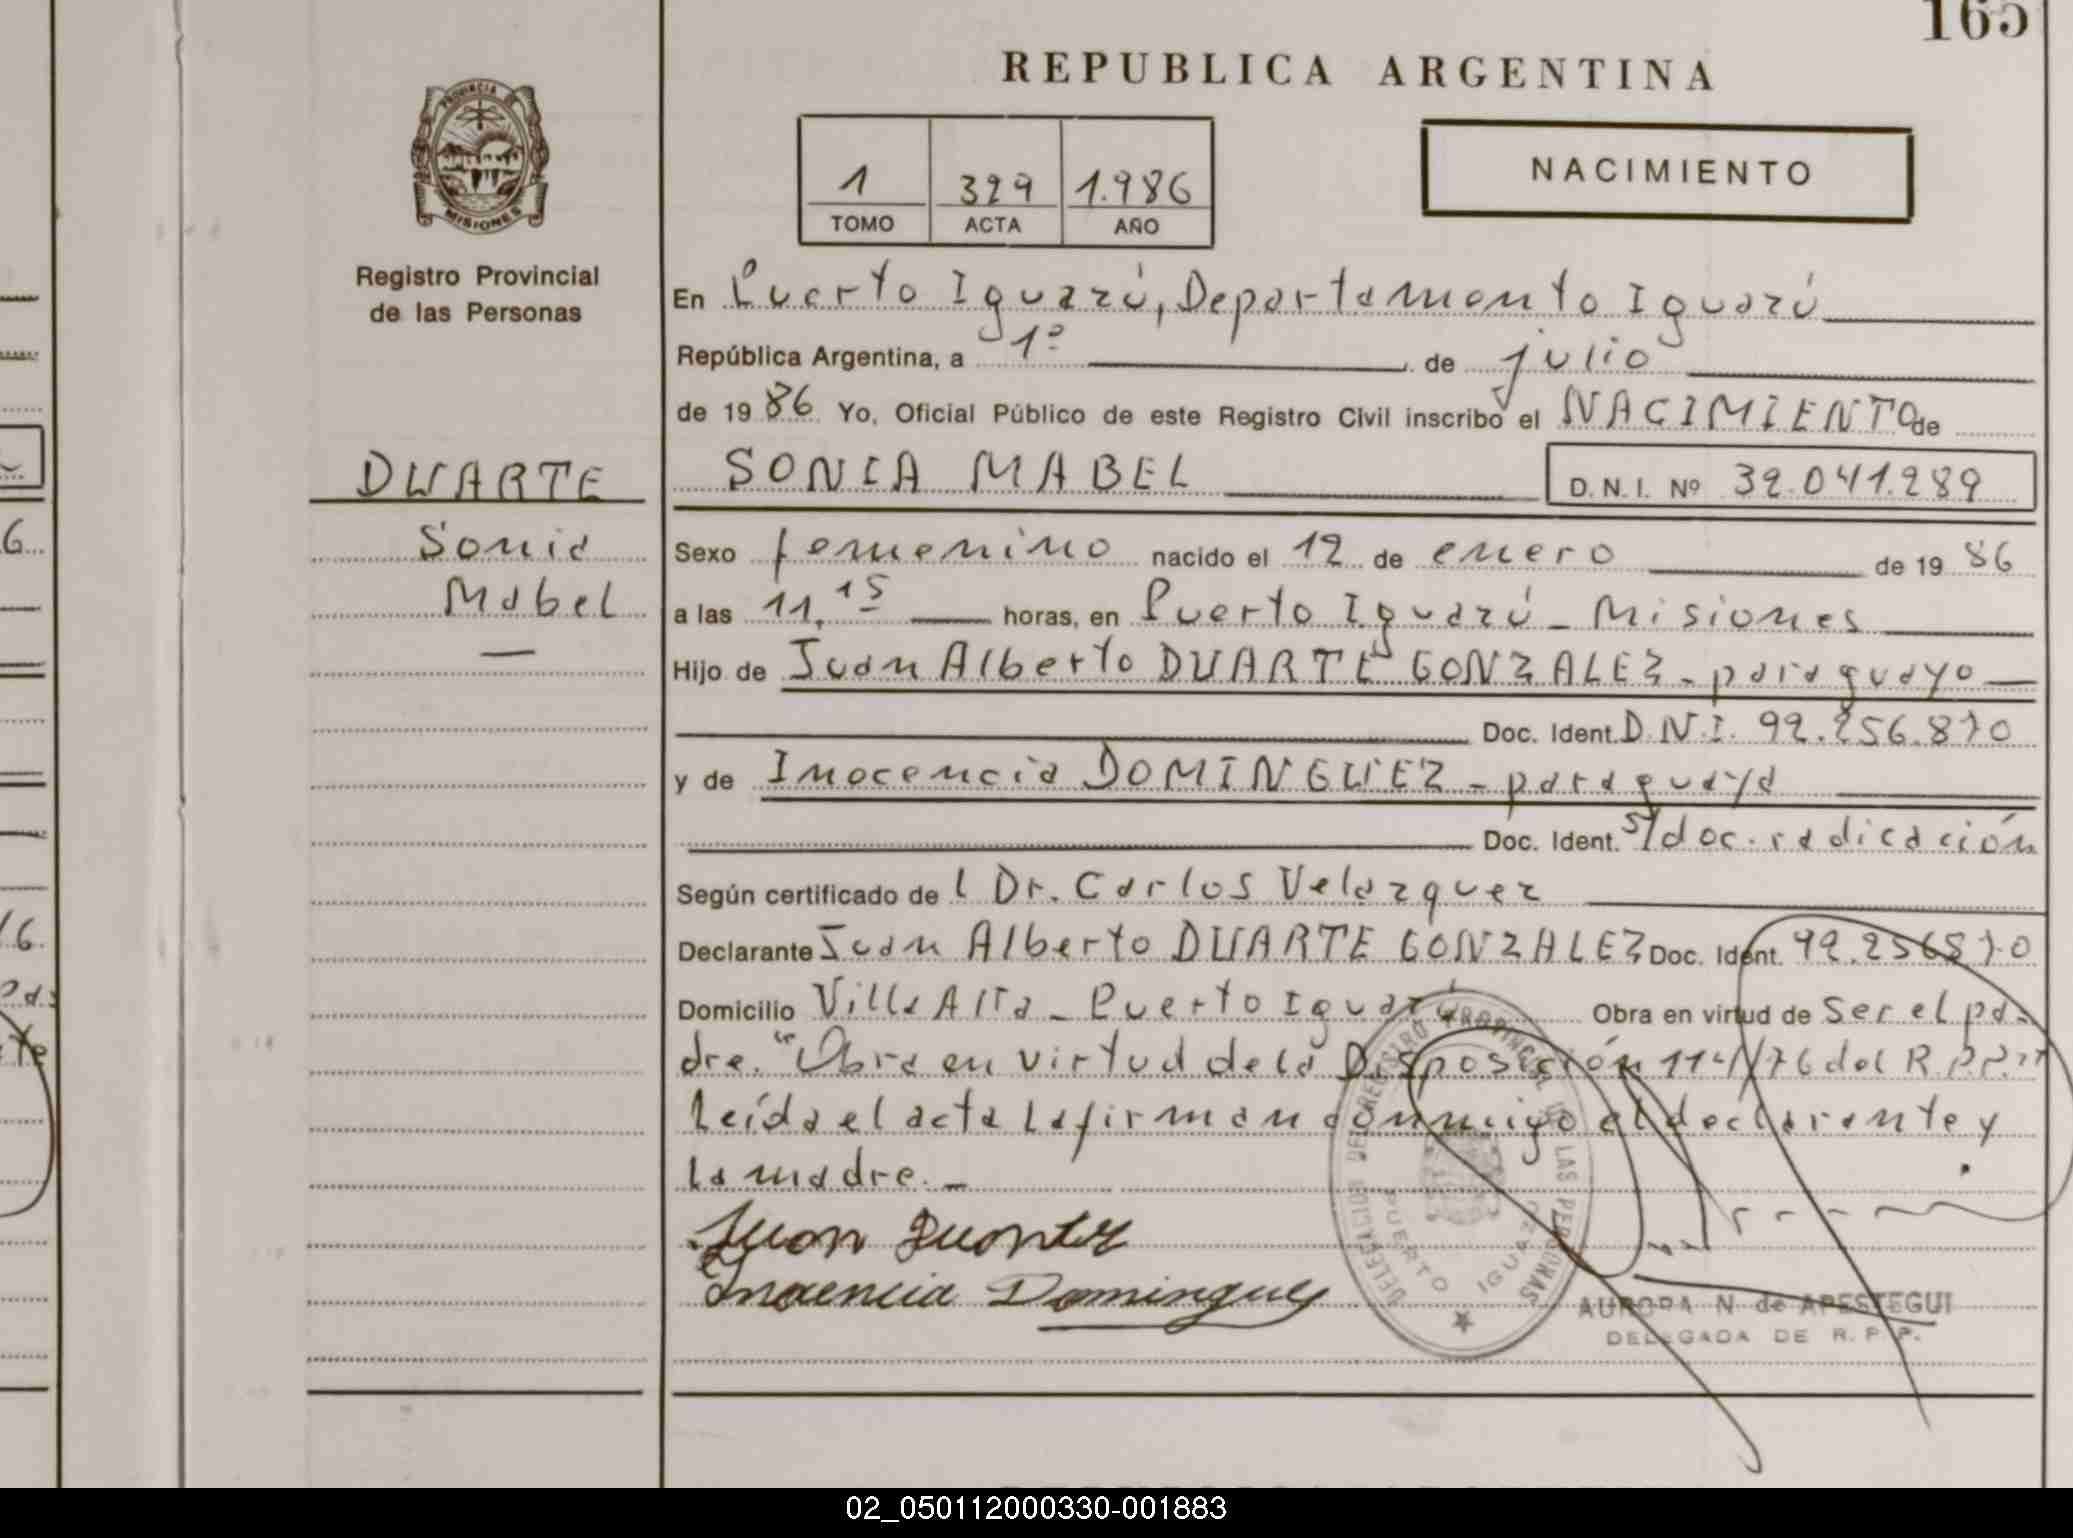 165
REPUBLICA ARGENTINA
PROVINCIA DE
MISIONES
1 329 1.986
TOMO ACTA AÑO
NACIMIENTO
Registro Provincial
de las Personas
DUARTE
Sonia
Mabel
En Puerto Iguazú, Departamento Iguazú
República Argentina, a 1º de julio
de 19 86 Yo, Oficial Público de este Registro Civil inscribo el NACIMIENTO de
SONIA MABEL D.N.I. Nº 32.041.289
Sexo femenino nacido el 12 de enero de 19 86
a las 11,15 horas, en Puerto Iguazú - Misiones
Hijo de Juan Alberto DUARTE GONZALEZ - paraguayo
Doc. Ident. D.N.I. 92.256.870
y de Inocencia DOMINGUEZ - paraguaya
Doc. Ident. s/doc. radicación
Según certificado de l Dr. Carlos Velazquez
Declarante Juan Alberto DUARTE GONZALEZ Doc. Ident. 92.256870
Domicilio Villa Alta - Puerto Iguazú Obra en virtud de Ser el pa-
dre. "Obra en virtud de la Disposición 114/76 del R.P.P."
Leída el acta la firman conmigo el declarante y
la madre. -
Juan Duarte
Inocencia Dominguez
DELEGACION DEL REGISTRO PROVINCIAL DE LAS PERSONAS
PUERTO IGUAZU
AURORA N. de APESTEGUI
DELEGADA DE R. P. P.
02_050112000330-001883